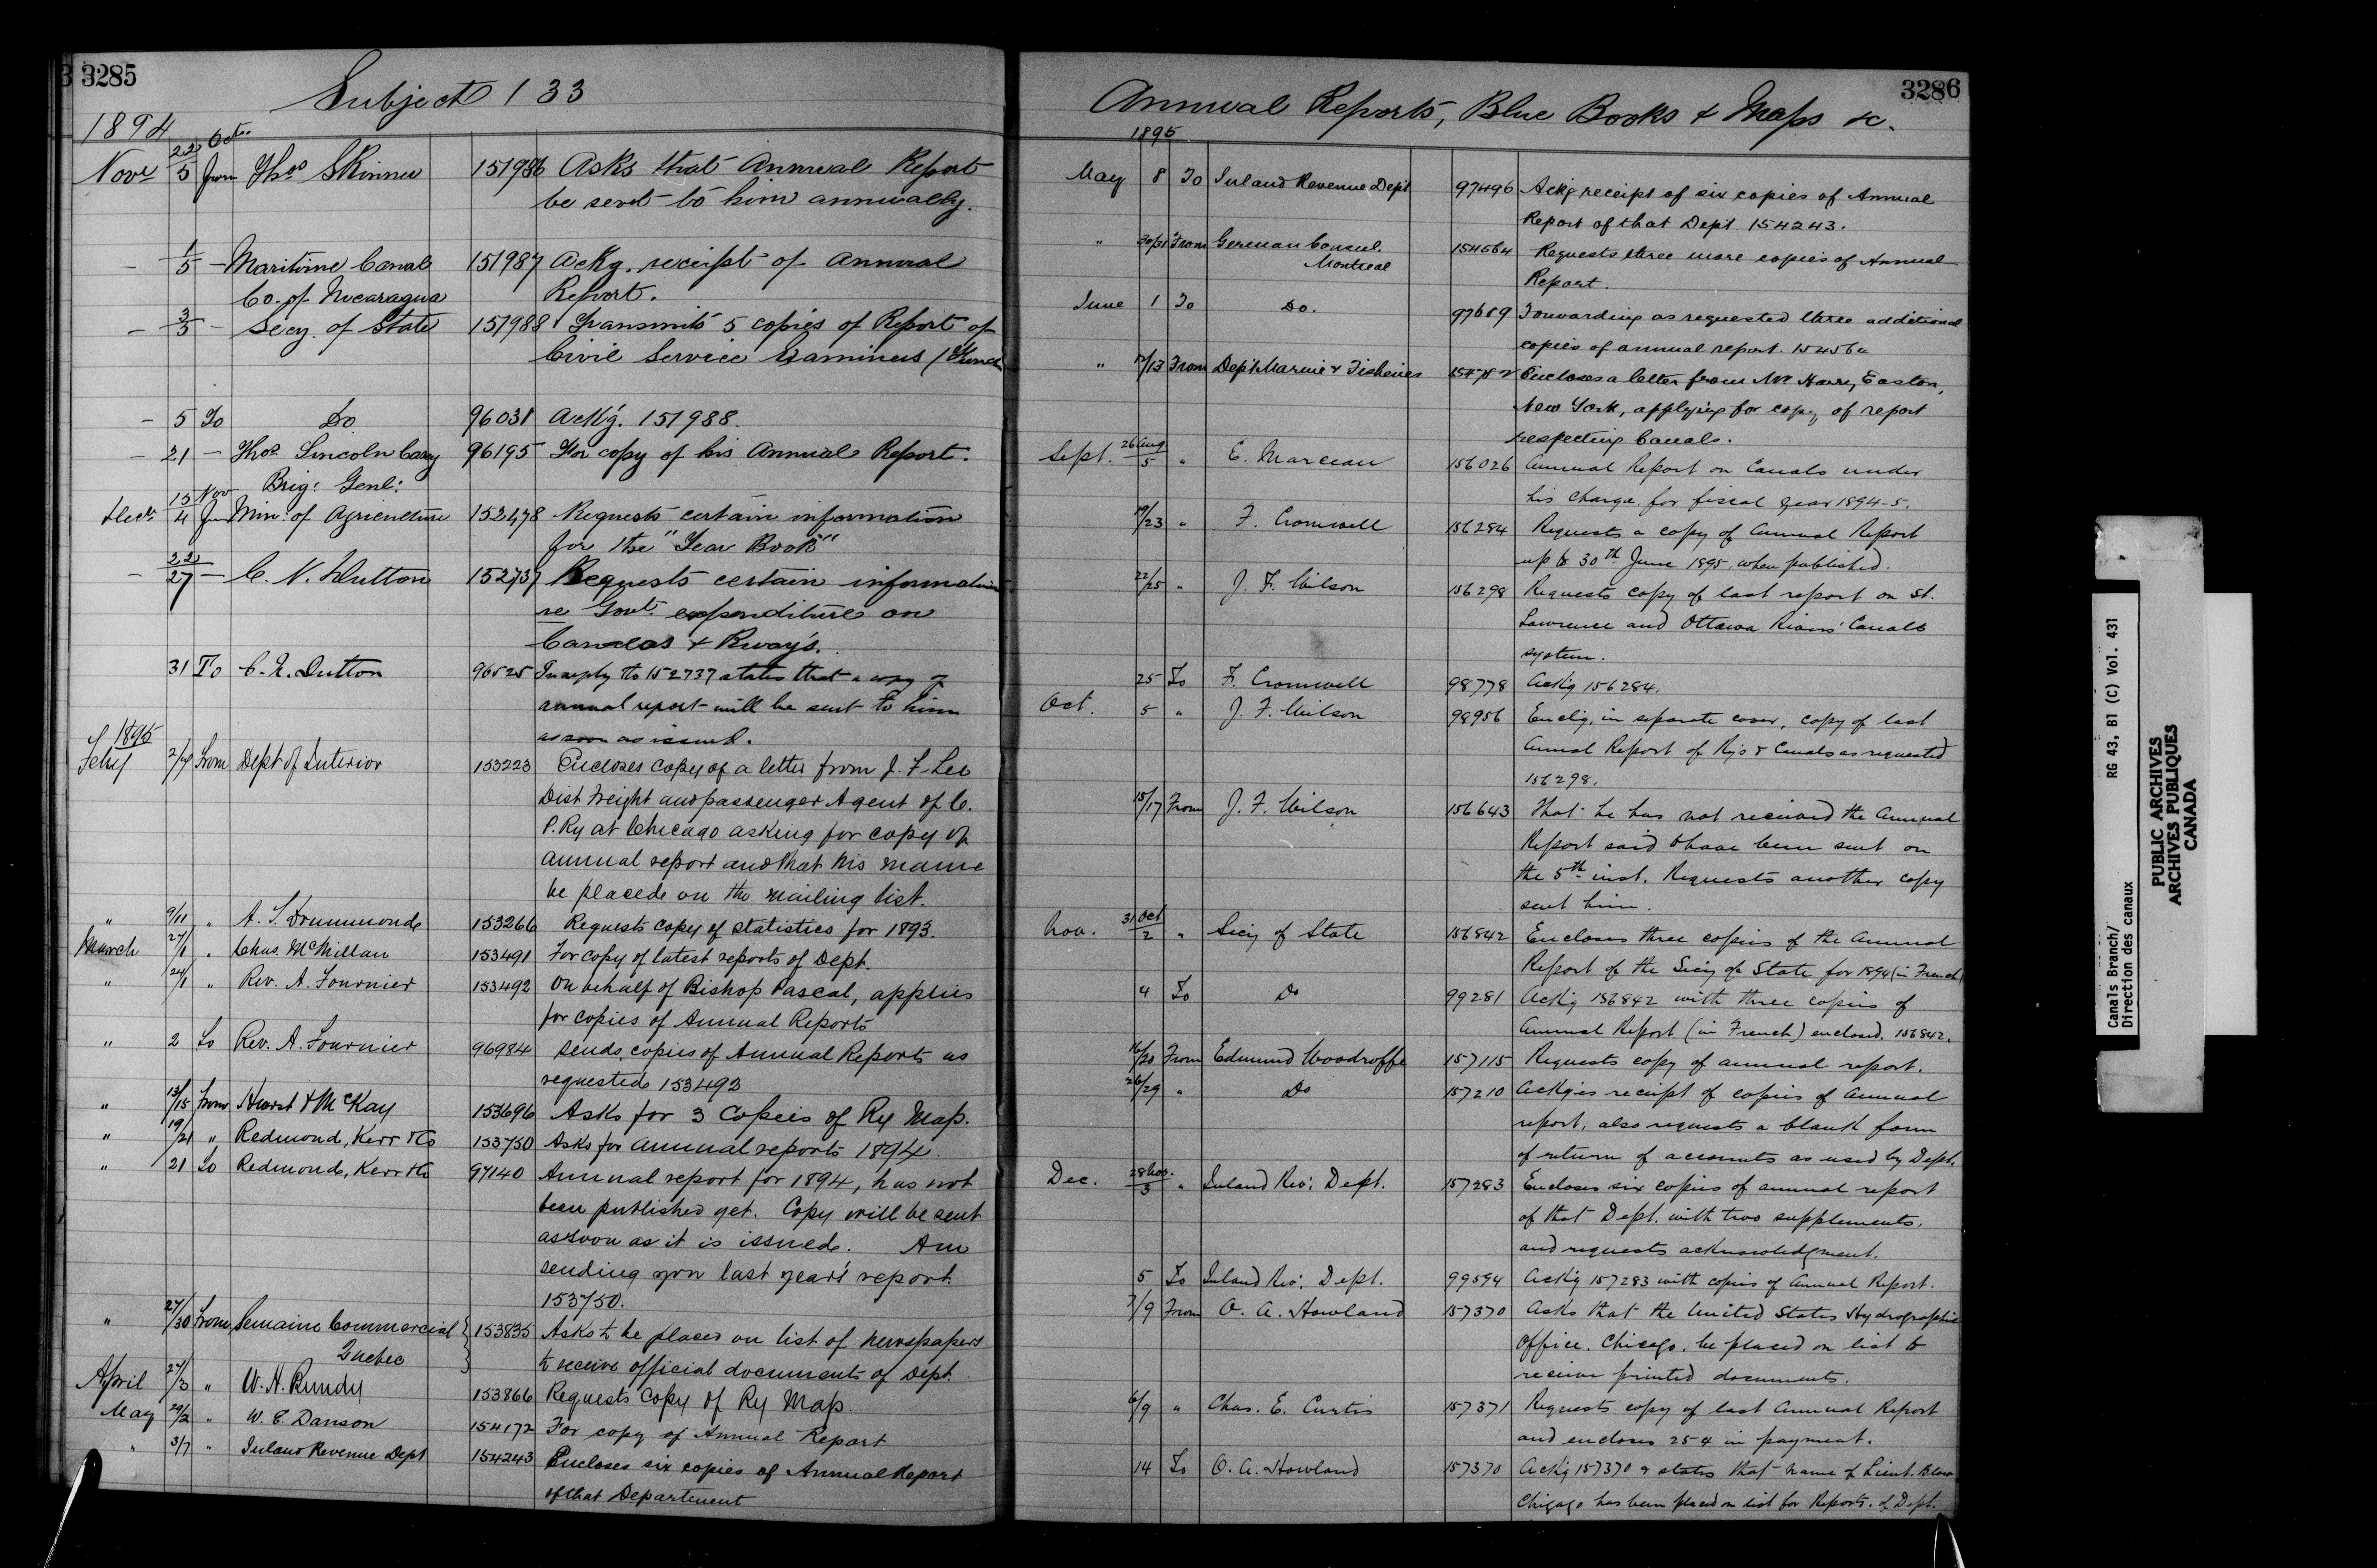 3285
Subject 133
1894
22 Oct.
Nov 5 from Thos Skinner 151986 Asks that Annual Report
be sent to him annually.
– 1/5 – Maritime Canal 151987 Ackg. receipt of Annual
Co. of Nicaragua Report.
– 3/5 – Secy. of State 151988 Transmits 5 copies of Report of
Civil Service Examiners (French
– 5 To Do 96031 Ackg. 151988.
– 21 – Thos Lincoln Casey 96195 For copy of his Annual Report.
Brig: Genl:
15 Nov
Decr 4 from Min: of Agriculture 152478 Requests certain information
for the "Year Book"
– 22/27 – C. N. Dutton 152737 Requests certain information
re Govt. expenditure on
Canals & Rways.
31 To C. N. Dutton 96525 In reply to 152737 states that a copy of
annual report will be sent to him
as soon as issued.
1895
Feby 2/4 From Dept of Interior 153223 Encloses copy of a letter from J. F. Lee
Dist Freight and passenger Agent of C.
P. Ry at Chicago asking for copy of
annual report and that his name
be placed on the mailing list.
" 9/11 " A. T. Drummond 153266 Requests copy of statistics for 1893.
March 27/1 " Chas. McMillan 153491 For copy of latest reports of Dept.
" 24/1 " Rev. A. Fournier 153492 On behalf of Bishop Pascal, applies
for copies of Annual Reports
" 2 To Rev. A. Fournier 96984 Sends copies of Annual Reports as
requested 153492
" 13/15 From Hurst & McKay 153696 Asks for 3 Copies of Ry Map.
" 19/21 " Redmond, Kerr & Co 153750 Asks for annual reports 1894.
" 21 To Redmond, Kerr & Co 97140 Annual report for 1894, has not
been published yet. Copy will be sent
as soon as it is issued. Am
sending you last year's report
153750.
" 27/30 From Semaine Commercial 153835 Asks to be placed on list of newspapers
Quebec to receive official documents of Dept.
April 27/3 " W. H. Rundy 153866 Requests Copy of Ry Map.
May 29/2 " W. E. Danson 154172 For copy of Annual Report
" 3/7 " Inland Revenue Dept 154243 Encloses six copies of Annual Report
of that Department
3286
Annual Reports, Blue Books & Maps &c.
1895
May 8 To Inland Revenue Dept 97496 Ackg receipt of six copies of Annual
Report of that Dept 154243.
" 30/31 From German Consul. 154564 Requests three more copies of Annual
Montreal Report.
June 1 To Do. 97689 Forwarding as requested three additional
copies of annual report. 154564
" 12/13 From Dept Marine & Fisheries Encloses a letter from Mr Harry Easton,
New York, applying for copy of report
respecting Canals.
Sept. 26 Aug/5 " E. Marceau 156026 Annual Report on Canals under
his charge for fiscal year 1894-5.
19/23 " F. Cromwell 156284 Requests a copy of Annual Report
up to 30th June 1895, when published.
22/25 " J. F. Wilson 156298 Requests copy of last report on St.
Lawrence and Ottawa Rivers' Canals
system.
25 To F. Cromwell 98778 Ackg 156284.
Oct. 5 " J. F. Wilson 98956 Enclg, in separate cover, copy of last
Annual Report of Rys & Canals as requested
156298.
15/17 From J. F. Wilson 156643 That he has not received the Annual
Report said to have been sent on
the 5th inst. Requests another copy
sent him.
Nov. 31 Oct/2 " Secy of State 156842 Encloses three copies of the Annual
Report of the Secy of State for 1894 (in French)
4 To Do 99281 Ackg 156842 with three copies of
Annual Report (in French) enclosed. 156842.
16/20 From Edmund Woodroffe 157115 Requests copy of annual report.
26/29 " Do 157210 Ackges receipt of copies of Annual
report, also requests a blank form
of return of accounts as used by Dept.
Dec. 28 Nov./3 " Inland Rev: Dept. 157283 Encloses six copies of annual report
of that Dept. with two supplements,
and requests acknowledgment.
5 To Inland Rev: Dept. 99594 Ackg 157283 with copies of Annual Report.
7/9 From O. A. Howland 157370 Asks that the United States Hydrographic
Office, Chicago, be placed on list to
receive printed documents.
6/9 " Chas. E. Curtis 157371 Requests copy of last Annual Report
and encloses 25¢ in payment.
14 To O. A. Howland 157370 Ackg 157370 & states that name of Lieut. Blow
Chicago has been placed on list for Reports of Dept.
Canals Branch/ RG 43, B1 (C) Vol. 431
Direction des canaux
PUBLIC ARCHIVES
ARCHIVES PUBLIQUES
CANADA